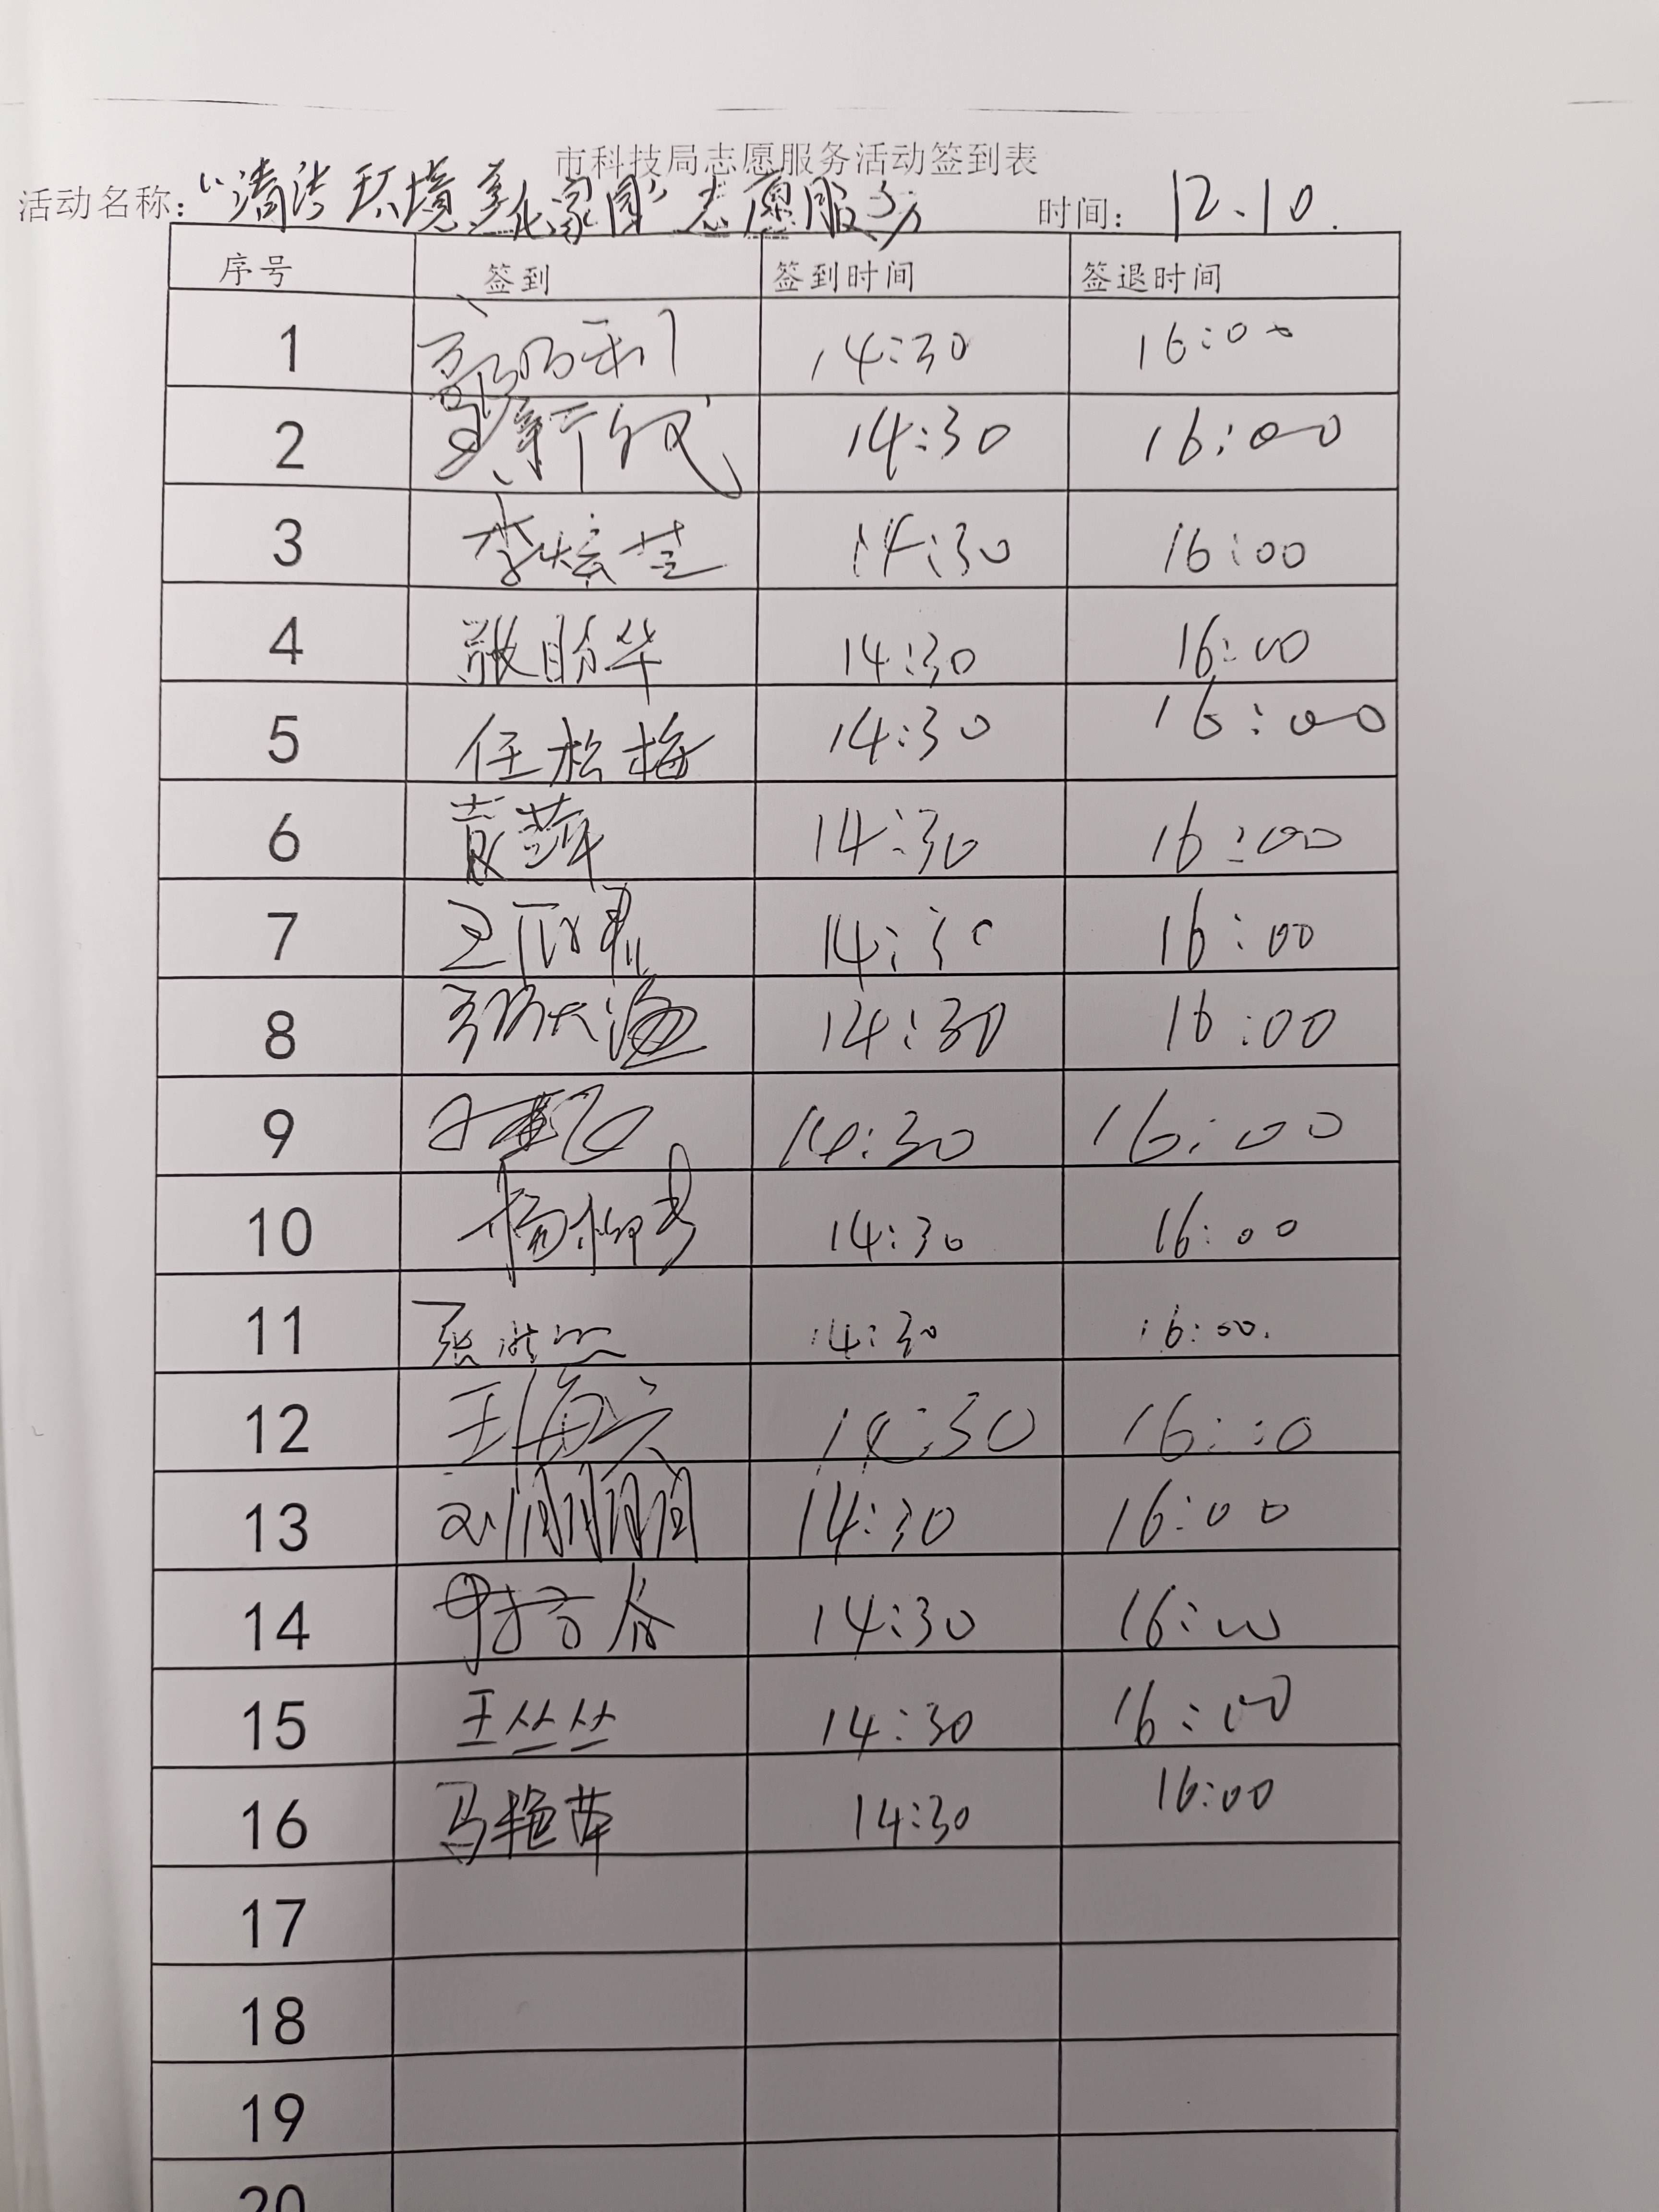 市科技局志愿服务活动签到表
活动名称：“清洁环境 美化家园”志愿服务 时间：12.10.
序号 签到 签到时间 签退时间
1 14:30 16:00
2 14:30 16:00
3 李炫芝 14:30 16:00
4 张盼华 14:30 16:00
5 任松梅 14:30 16:00
6 袁萍 14:30 16:00
7 14:30 16:00
8 14:30 16:00
9 14:30 16:00
10 杨柳青 14:30 16:00
11 14:30 16:00.
12 王海六 14:30 16:00
13 14:30 16:00
14 14:30 16:00
15 王丛丛 14:30 16:00
16 马艳苹 14:30 16:00
17
18
19
20